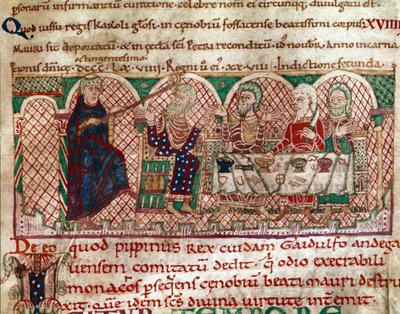 psonarū infirmantiū curatione celebre nom̄ ei circunq; divulgatū est.
Quod iussu regis karoli glosi, in cenobiū fossatense beatissimi corpus XVIII
Mauri sit deportatū & in æcc̄la sc̄i Petri reconditū. id. novēbr̄. Anno incarna
octingentesimo
tionis dn̄icæ. dccc. Lx. viiii. Regni ū ei xx. viii. Indictione secunda.
De eo quod pippinus Rex cuidam Gaidulfo andega
vensem comitatū dedit. q odio execrabili
monacos pseqens cenobiū beati mauri destru
xit. que idem sc̄s divina virtute intemit.
TEMPORE